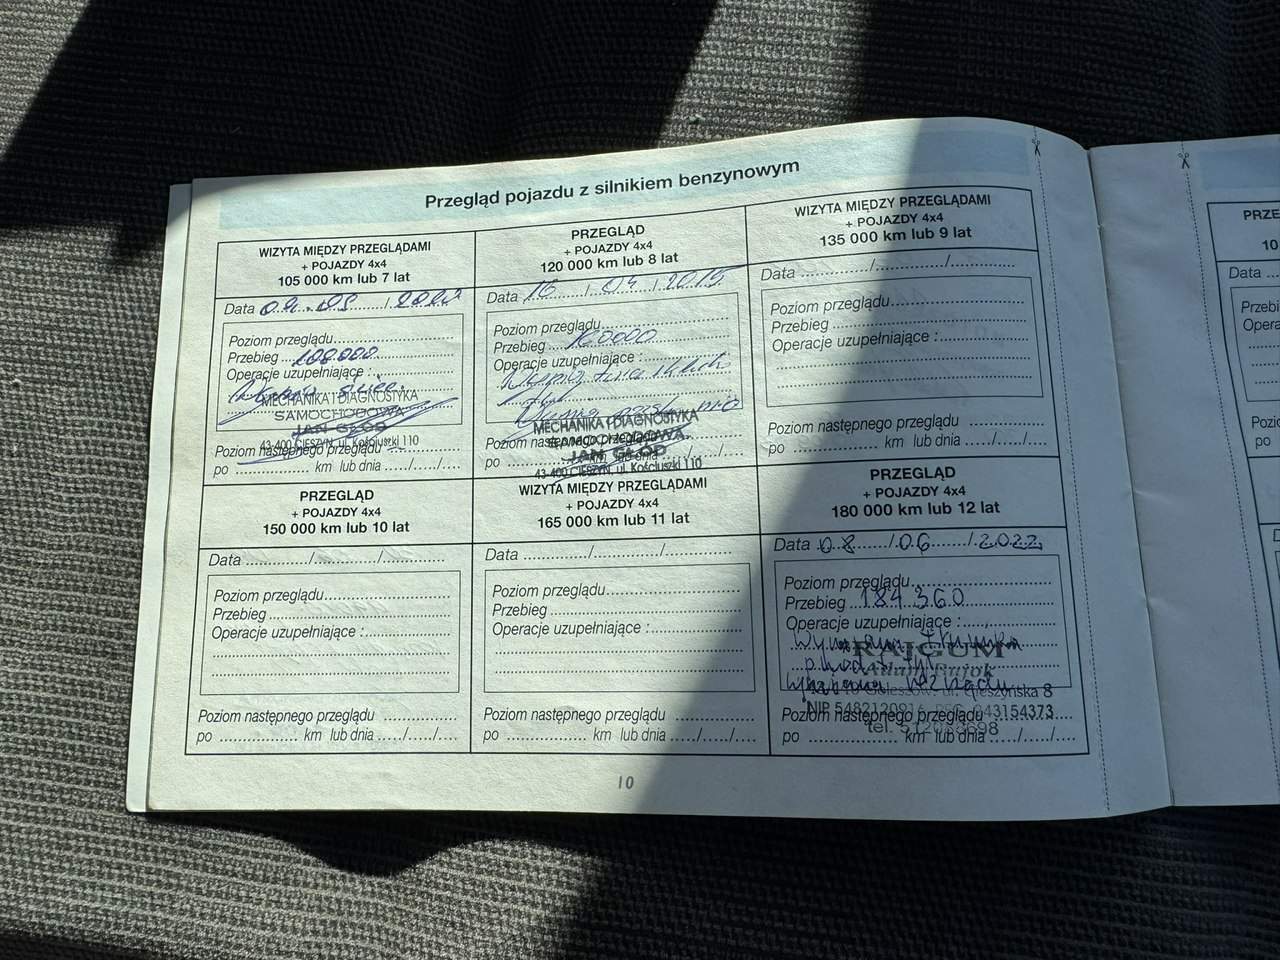 Przegląd pojazdu z silnikiem benzynowym
WIZYTA MIĘDZY PRZEGLĄDAMI
+ POJAZDY 4x4
105 000 km lub 7 lat
Data
Poziom przeglądu
Przebieg 108000
Operacje uzupełniające :
MECHANIKA I DIAGNOSTYKA
SAMOCHODOWA
JAN GŁÓD
43-400 CIESZYN, ul. Kościuszki 110
Poziom następnego przeglądu
po km lub dnia / /
PRZEGLĄD
+ POJAZDY 4x4
120 000 km lub 8 lat
Data 16 / 04 / 2015
Poziom przeglądu
Przebieg 160000
Operacje uzupełniające :
MECHANIKA I DIAGNOSTYKA
SAMOCHODOWA
JAN GŁÓD
43-400 CIESZYN, ul. Kościuszki 110
Poziom następnego przeglądu
po km lub dnia / /
WIZYTA MIĘDZY PRZEGLĄDAMI
+ POJAZDY 4x4
135 000 km lub 9 lat
Data / /
Poziom przeglądu
Przebieg
Operacje uzupełniające :
Poziom następnego przeglądu
po km lub dnia / /
PRZEGLĄD
+ POJAZDY 4x4
150 000 km lub 10 lat
Data / /
Poziom przeglądu
Przebieg
Operacje uzupełniające :
Poziom następnego przeglądu
po km lub dnia / /
WIZYTA MIĘDZY PRZEGLĄDAMI
+ POJAZDY 4x4
165 000 km lub 11 lat
Data / /
Poziom przeglądu
Przebieg
Operacje uzupełniające :
Poziom następnego przeglądu
po km lub dnia / /
PRZEGLĄD
+ POJAZDY 4x4
180 000 km lub 12 lat
Data 08 / 06 / 2022
Poziom przeglądu
Przebieg 184 360
Operacje uzupełniające :
Wymiana
RAJGUM
Rajok
ul. Cieszyńska 8
NIP 5482120916 043154373
Poziom następnego przeglądu
tel.
po km lub dnia / /
10
PRZE
10
Data
Przebi
Opera